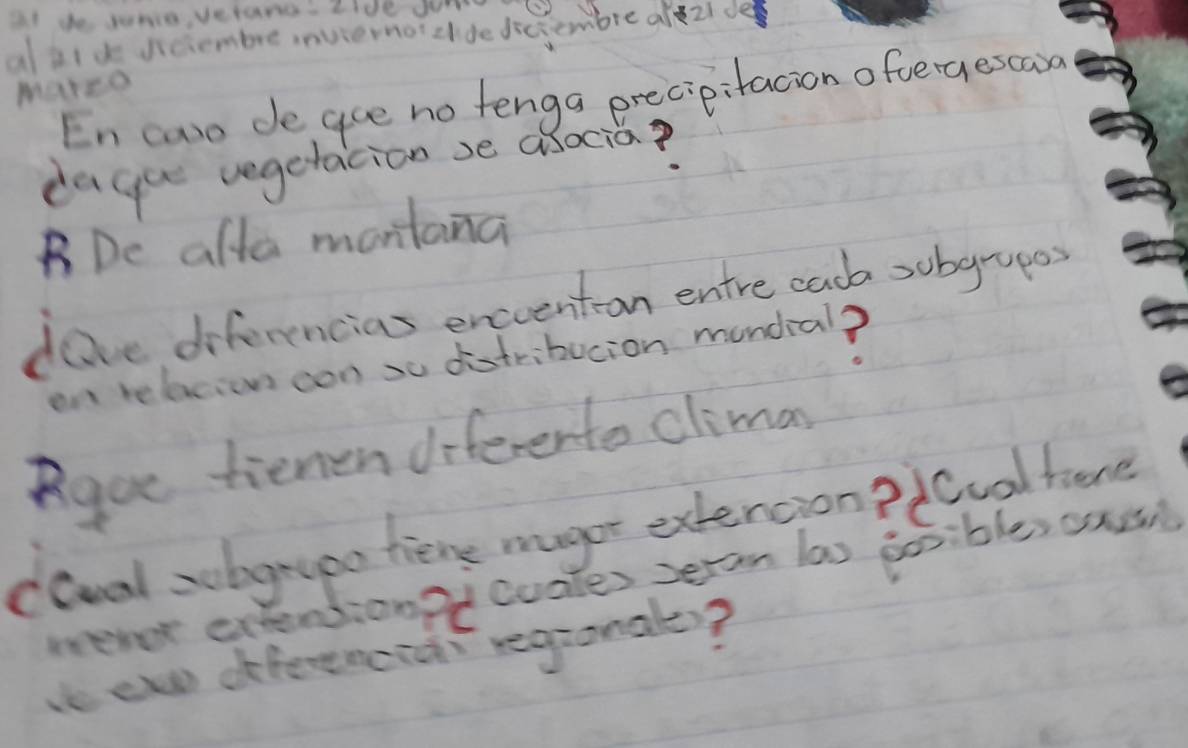 21 de Junio, verano: 21 de Junio
al 21 de diciembre invierno: 21 de diciembre al 21 de
marzo
En caso de que no tenga precipitacion o fuera escasa
¿a que vegetacion se asocia?
R De alta montaña
¿Que diferencias encuentran entre cada subgrupos
en relacion con su distribucion mundial?
R que tienen diferente clima
¿Cual subgrupo tiene mayor extencion? ¿Cual tiene
menor extension? ¿cuales seran las posibles causas
de esas diferencias regionales?